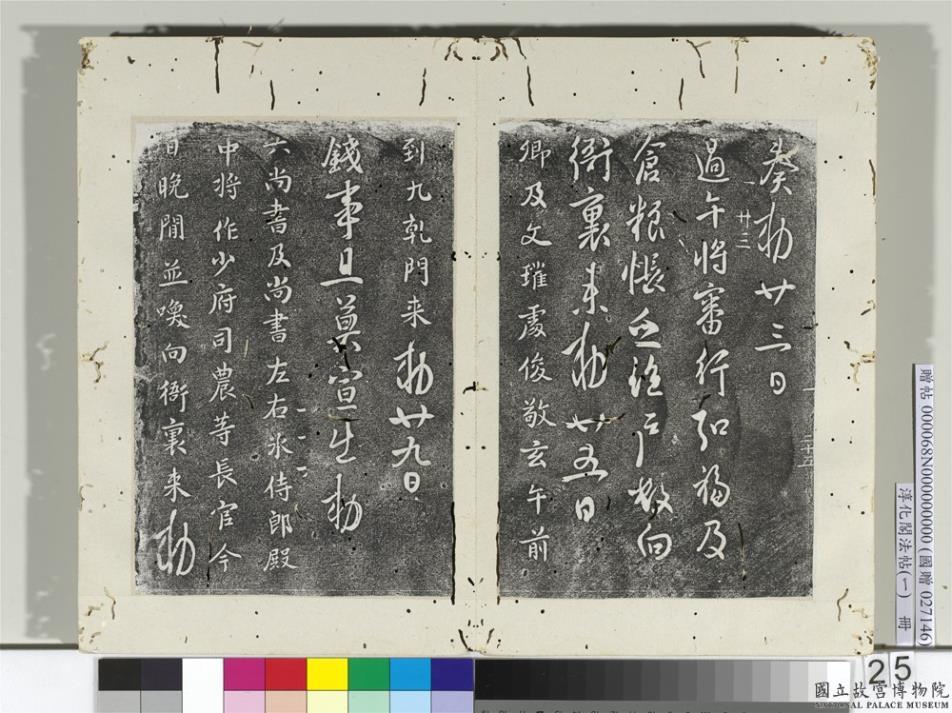 癸 勅 廿三日
過午將審行弘福及
倉粮帳 及 戶數向
衙裏来勅廿五日
卿及文瓘處俊敬玄午前
到九乾門来勅廿九日
錢事且莫宣生勅
六尚書及尚書左右丞侍郎殿
中將作少府司農等長官今
日晚間並喚向衙裏来勅
廿三
二十五
贈帖 000068N000000000 (國贈 027146)
淳化閣法帖(一) 冊
25
國立故宮博物院
NATIONAL PALACE MUSEUM